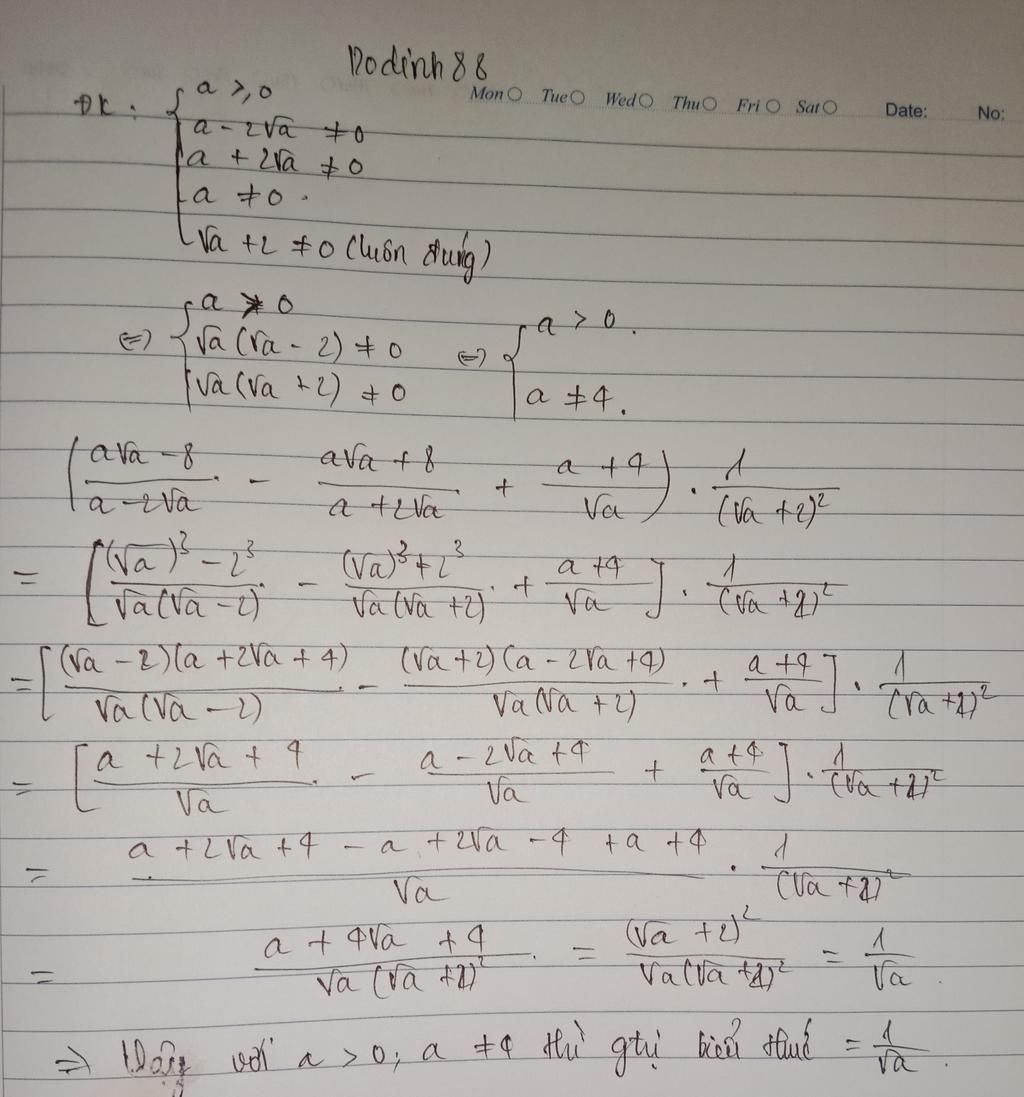 Dodinh88
Mon Tue Wed Thu Fri Sat Date: No:
ĐK: { a ≥ 0
a - 2√a ≠ 0
a + 2√a ≠ 0
a ≠ 0.
√a + 2 ≠ 0 (luôn đúng)
⇔ { a ≠ 0
√a(√a - 2) ≠ 0 ⇔ { a > 0.
√a(√a + 2) ≠ 0 a ≠ 4.
((a√a - 8)/(a - 2√a) - (a√a + 8)/(a + 2√a) + (a + 4)/√a) . 1/(√a + 2)²
= [((√a)³ - 2³)/(√a(√a - 2)) - ((√a)³ + 2³)/(√a(√a + 2)) + (a + 4)/√a] . 1/(√a + 2)²
= [(√a - 2)(a + 2√a + 4)/(√a(√a - 2)) - (√a + 2)(a - 2√a + 4)/(√a(√a + 2)) + (a + 4)/√a] . 1/(√a + 2)²
= [(a + 2√a + 4)/√a - (a - 2√a + 4)/√a + (a + 4)/√a] . 1/(√a + 2)²
= (a + 2√a + 4 - a + 2√a - 4 + a + 4)/√a . 1/(√a + 2)²
= (a + 4√a + 4)/(√a(√a + 2)²) = (√a + 2)²/(√a(√a + 2)²) = 1/√a.
⇒ Vậy với a > 0; a ≠ 4 thì gtrị biểu thức = 1/√a.